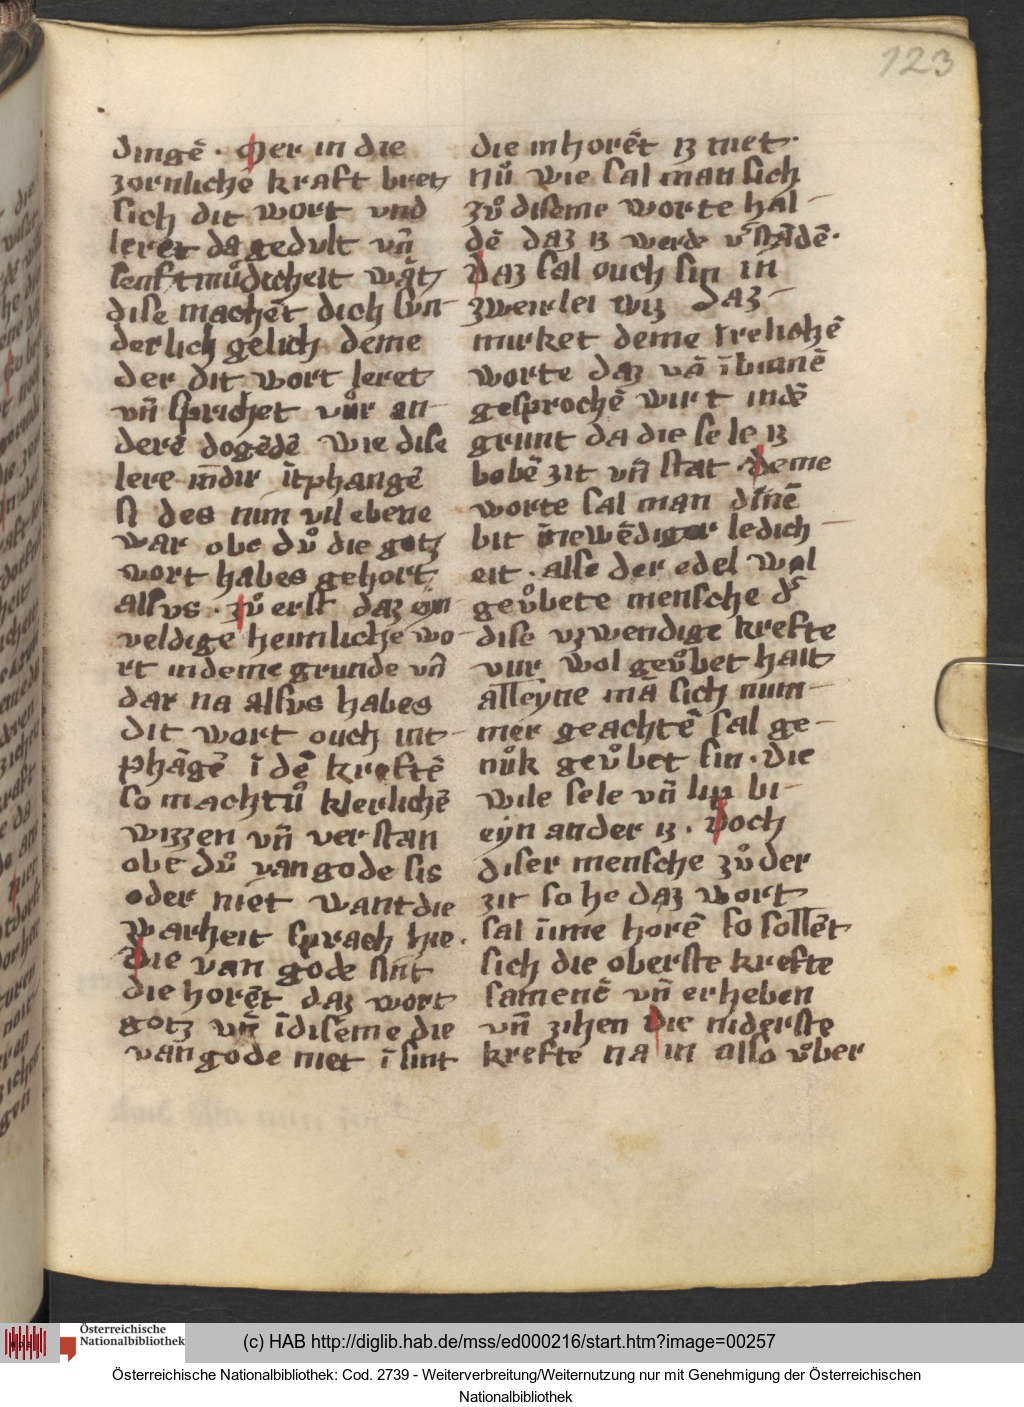 123
dingē · Mer in die
zornliche kraft bret
sich dit wort vnd
leret da gedult vn̄
senftmuͦdicheit wāt
dise machēt dich sun-
derlich gelich deme
der dit wort leret
vn̄ sprichet vuͦr an-
derē dogēdē wie dise
lere in̄dir ītphangē
si des nim vil ebene
war obe duͦ die gotz
wort habes gehort
alsus · zuͦ erst daz eyn
veldige heimliche wo-
rt in deme grunde vn̄
dar na alsus habes
dit wort ouch int-
phāgē ī dē kreftē
so machtuͦ klerlichē
wizzen vn̄ verstan
obe duͦ van gode sis
oder niet want die
warheit sprach hie.
Die van gode sint
die horēt daz wort
gotz vn̄ ī diseme die
van gode niet ī sint
die in horēt iz niet·
Nuͦ wie sal man sich
zuͦ diseme worte hal-
dē daz iz werde v᷑stādē·
Daz sal ouch sin in
zweirlei wiz Daz-
mirket deme vrelichē
worte daz vā ībinnē
gesprochē wirt in dē
grunt da die sele iz
bobē zit vn̄ stat · Deme
worte sal man dinē
bit inewēdiger ledich-
eit · alse der edel wol
geuͦbete mensche d᷑
dise vzwendige krefte
vur wol geuͦbet hait
alleyne mā sich num-
mer geachtē sal ge-
nuͦk geuͦbet sin · die
wile sele vn̄ lip bi-
eyn ander iz · Doch
diser mensche zuͦ der
zit so he daz wort
sal īime horē so sollēt
sich die oberste krefte
samenē vn̄ erheben
vn̄ zihen Die niderste
krefte na in also vͦber
(c) HAB http://diglib.hab.de/mss/ed000216/start.htm?image=00257
Österreichische
Nationalbibliothek
Österreichische Nationalbibliothek: Cod. 2739 - Weiterverbreitung/Weiternutzung nur mit Genehmigung der Österreichischen
Nationalbibliothek